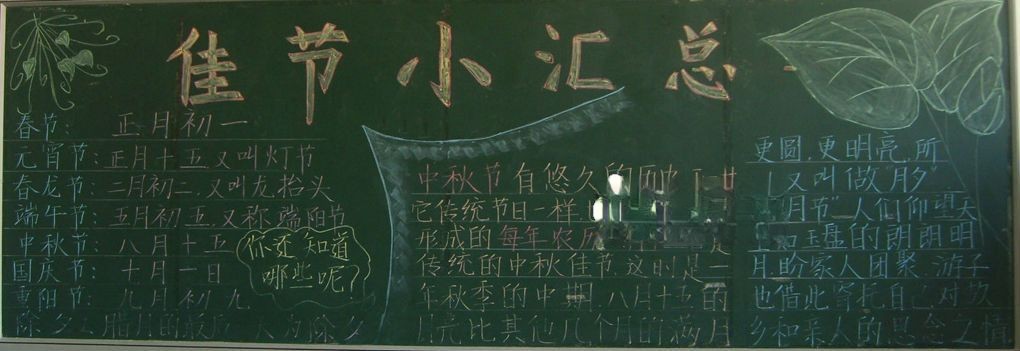 佳节小汇总
春节：正月初一
元宵节：正月十五，又叫灯节
春龙节：二月初二，又叫龙抬头
端午节：五月初五，又称端阳节
中秋节：八月十五
国庆节：十月一日
重阳节：九月初九
除夕：腊月的最后一天为除夕
你还知道
哪些呢？
中秋节自悠久的
它传统节日一样
形成的每年农历
传统的中秋佳节，这时是一
年秋季的中期，八月十五的
月亮比其他几个月的满月
更圆，更明亮，所
又叫做"月夕"
月节"人们仰望天
玉盘的朗朗明
月，盼家人团聚，游子
也借此寄托自己对故
乡和亲人的思念之情